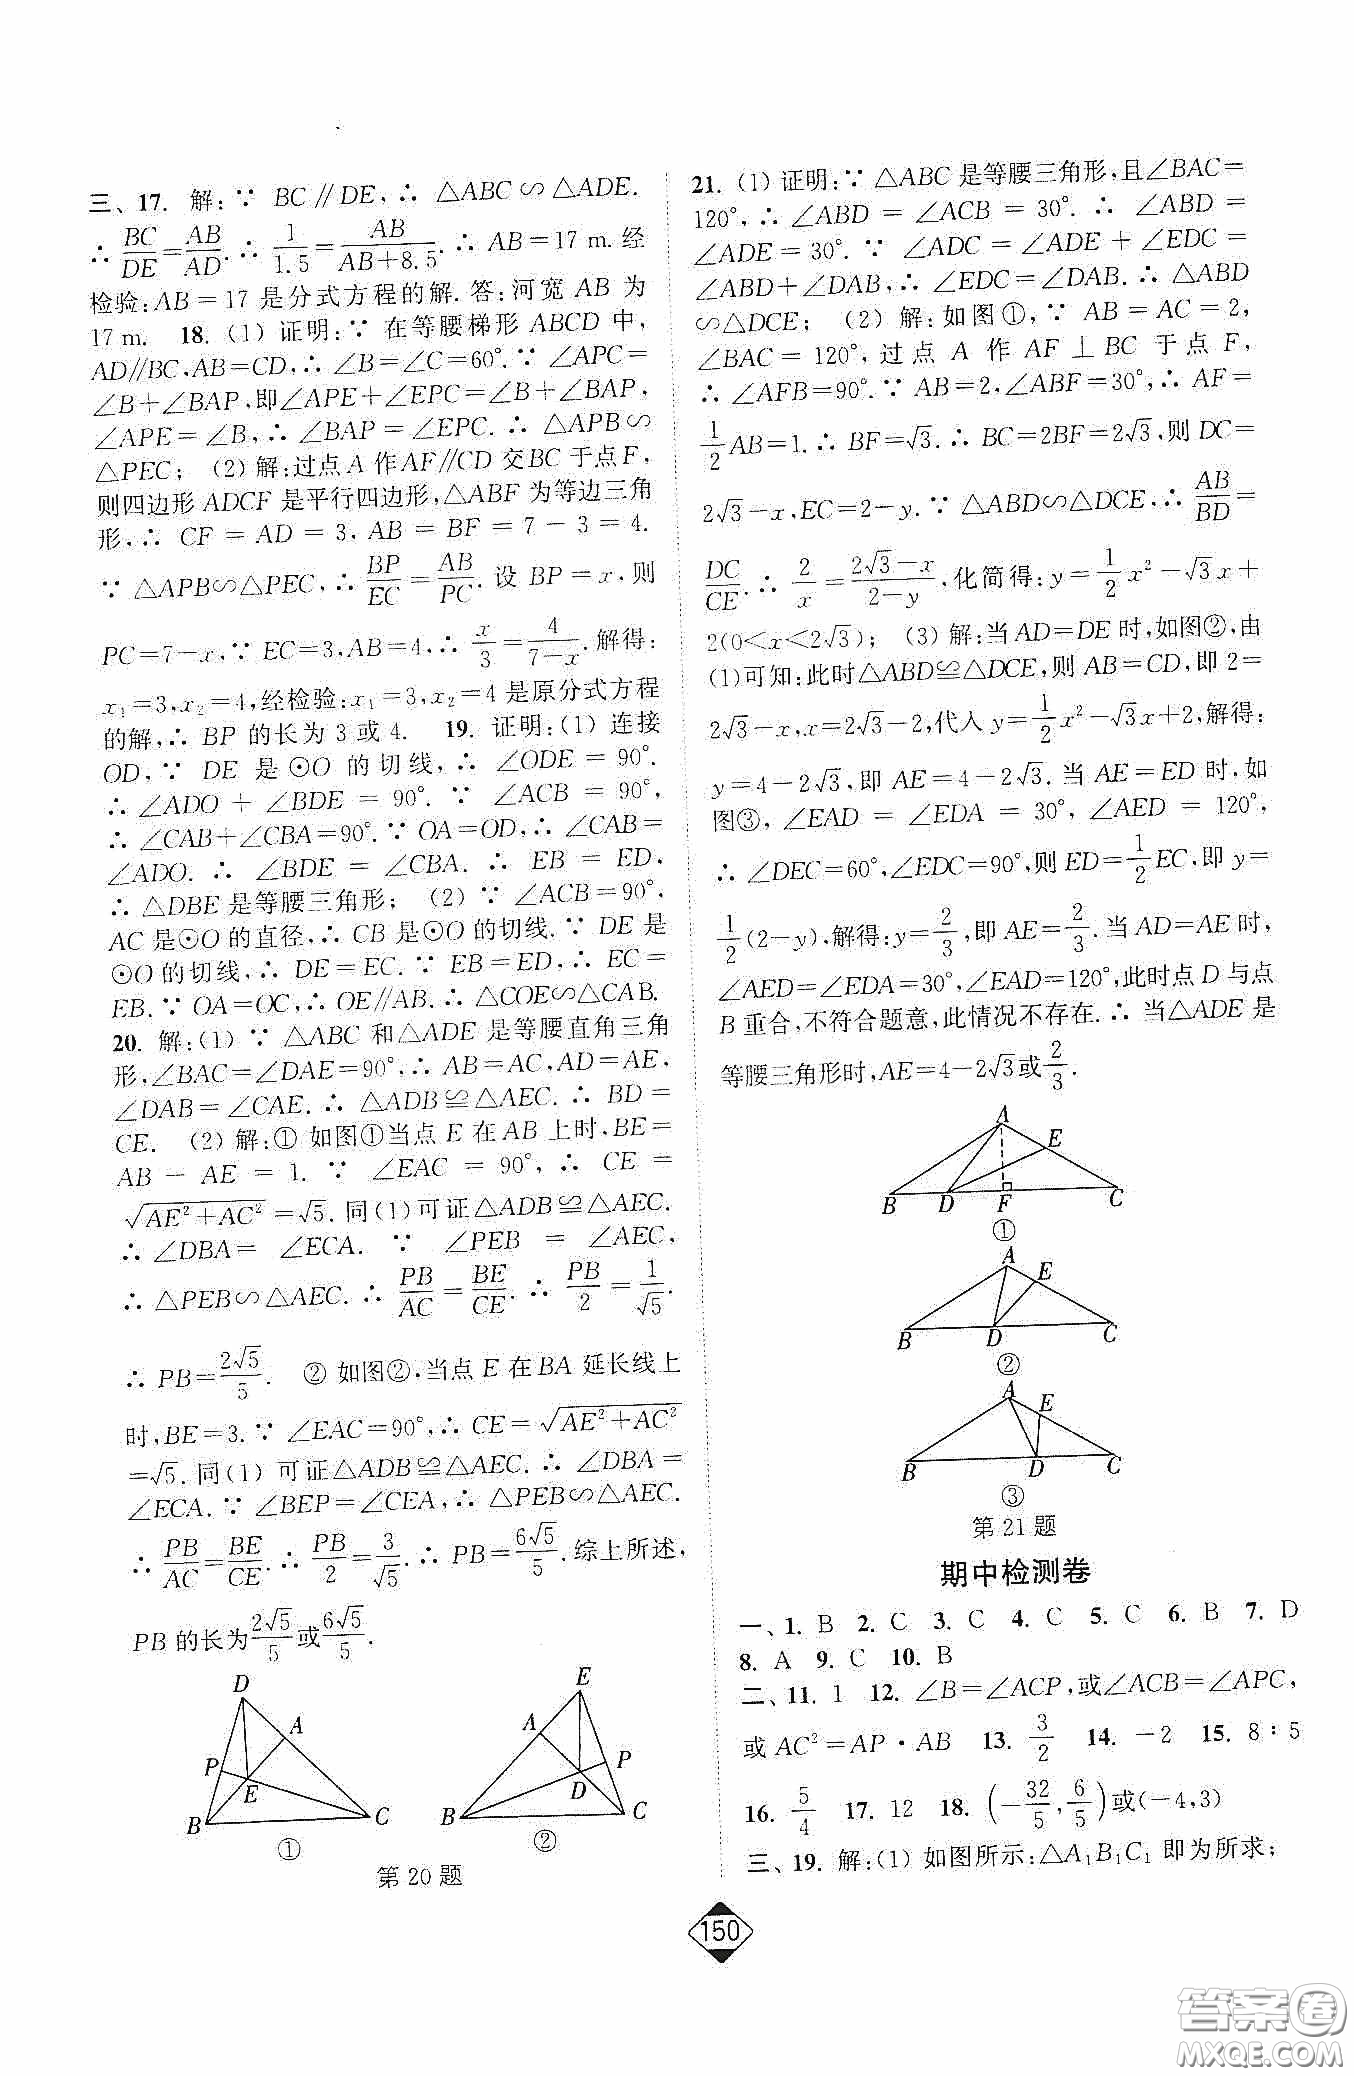 三、17. 解:∵ BC∥DE,∴ △ABC∽△ADE.
∴ BC/DE=AB/AD.∴ 1/1.5=AB/(AB+8.5).∴ AB=17 m.经
检验:AB=17 是分式方程的解.答:河宽 AB 为
17 m. 18. (1) 证明:∵ 在等腰梯形 ABCD 中,
AD∥BC,AB=CD,∴ ∠B=∠C=60°.∵ ∠APC=
∠B+∠BAP,即∠APE+∠EPC=∠B+∠BAP,
∠APE=∠B,∴ ∠BAP=∠EPC.∴ △APB∽
△PEC; (2) 解:过点 A 作 AF∥CD 交 BC 于点 F,
则四边形 ADCF 是平行四边形,△ABF 为等边三角
形,∴ CF=AD=3,AB=BF=7-3=4.
∵ △APB∽△PEC,∴ BP/EC=AB/PC.设 BP=x,则
PC=7-x,∵ EC=3,AB=4,∴ x/3=4/(7-x).解得:
x₁=3,x₂=4,经检验:x₁=3,x₂=4 是原分式方程
的解,∴ BP 的长为 3 或 4. 19. 证明:(1) 连接
OD,∵ DE 是⊙O 的切线,∴ ∠ODE=90°.
∴ ∠ADO+∠BDE=90°.∵ ∠ACB=90°,
∴ ∠CAB+∠CBA=90°.∵ OA=OD,∴ ∠CAB=
∠ADO.∴ ∠BDE=∠CBA.∴ EB=ED,
∴ △DBE 是等腰三角形; (2) ∵ ∠ACB=90°,
AC 是⊙O 的直径,∴ CB 是⊙O 的切线.∵ DE 是
⊙O 的切线,∴ DE=EC.∵ EB=ED,∴ EC=
EB.∵ OA=OC,∴ OE∥AB.∴ △COE∽△CAB.
20. 解:(1) ∵ △ABC 和△ADE 是等腰直角三角
形,∠BAC=∠DAE=90°,∴ AB=AC,AD=AE,
∠DAB=∠CAE.∴ △ADB≌△AEC.∴ BD=
CE. (2) 解:① 如图①当点 E 在 AB 上时,BE=
AB-AE=1.∵ ∠EAC=90°,∴ CE=
√(AE²+AC²)=√5.同(1)可证△ADB≌△AEC.
∴ ∠DBA=∠ECA.∵ ∠PEB=∠AEC,
∴ △PEB∽△AEC.∴ PB/AC=BE/CE.∴ PB/2=1/√5.
∴ PB=2√5/5. ② 如图②,当点 E 在 BA 延长线上
时,BE=3.∵ ∠EAC=90°,∴ CE=√(AE²+AC²)
=√5.同(1)可证△ADB≌△AEC.∴ ∠DBA=
∠ECA.∵ ∠BEP=∠CEA,∴ △PEB∽△AEC.
∴ PB/AC=BE/CE.∴ PB/2=3/√5.∴ PB=6√5/5.综上所述,
PB 的长为2√5/5或6√5/5.
D
A
P
E
B
C
①
E
A
P
D
B
C
②
第 20 题
21. (1) 证明:∵ △ABC 是等腰三角形,且∠BAC=
120°,∴ ∠ABD=∠ACB=30°.∴ ∠ABD=
∠ADE=30°.∵ ∠ADC=∠ADE+∠EDC=
∠ABD+∠DAB,∴ ∠EDC=∠DAB.∴ △ABD
∽△DCE; (2) 解:如图①,∵ AB=AC=2,
∠BAC=120°,过点 A 作 AF⊥BC 于点 F,
∴ ∠AFB=90°.∵ AB=2,∠ABF=30°,∴ AF=
1/2AB=1.∴ BF=√3.∴ BC=2BF=2√3,则 DC=
2√3-x,EC=2-y.∵ △ABD∽△DCE,∴ AB/BD=
DC/CE.∴ 2/x=(2√3-x)/(2-y),化简得:y=1/2x²-√3x+
2(0<x<2√3); (3) 解:当 AD=DE 时,如图②,由
(1)可知:此时△ABD≌△DCE,则 AB=CD,即 2=
2√3-x,x=2√3-2,代入 y=1/2x²-√3x+2,解得:
y=4-2√3,即 AE=4-2√3.当 AE=ED 时,如
图③,∠EAD=∠EDA=30°,∠AED=120°,
∴ ∠DEC=60°,∠EDC=90°,则 ED=1/2EC,即 y=
1/2(2-y),解得:y=2/3,即 AE=2/3.当 AD=AE 时,
∠AED=∠EDA=30°,∠EAD=120°,此时点 D 与点
B 重合,不符合题意,此情况不存在.∴ 当△ADE 是
等腰三角形时,AE=4-2√3或2/3.
A
E
B D F C
①
A
E
B D C
②
A
E
B D C
③
第 21 题
期中检测卷
一、1. B 2. C 3. C 4. C 5. C 6. B 7. D
8. A 9. C 10. B
二、11. 1 12. ∠B=∠ACP,或∠ACB=∠APC,
或 AC²=AP·AB 13. 3/2 14. -2 15. 8∶5
16. 5/4 17. 12 18. (-32/5,6/5)或(-4,3)
三、19. 解:(1) 如图所示:△A₁B₁C₁ 即为所求;
150
答案圈
MXQE.COM